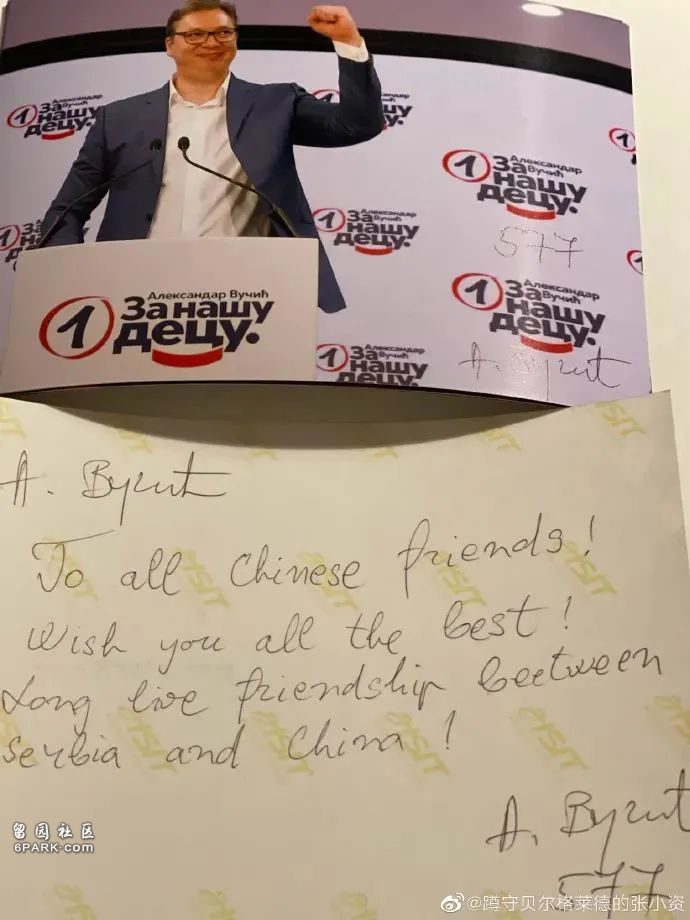 Александар Вучић
1 За нашу децу.
Александар Вучић
1 За нашу децу.
577
Александар Вучић
1 За нашу децу.
Александар Вучић
1 За нашу децу.
Александар Вучић
1 За нашу децу.
Александар Вучић
1 За нашу децу.
А. Вучић
А. Вучић
To all Chinese friends!
Wish you all the best!
Long live friendship beetween
Serbia and China!
А. Вучић
577
留园社区
6PARK.COM
@蹲守贝尔格莱德的张小资